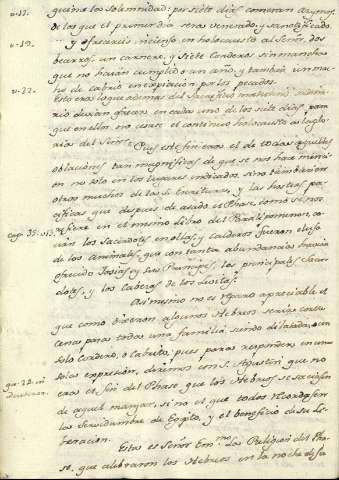 v. 17. guina los solemnidad: por siete dias comeran azymos,
de los que el primer dia sera venerado, y sanctificado.
v. 19. y ofrecereis incienso, en holocausto al Señor, dos
becerros, un carnero, y siete Corderos sin mancha
que no hayan cumplido un año, y tambien un ma-
v. 22. cho de cabrio en expiacion por los pecados.
Esto era lo que ademas del
devian ofrecer en cada uno de los siete dias, para
que en ellos no cesase el continuo holocausto a la glo-
ria del Señor.
Pues este fin era el de todas aquellas
oblaciones tan magnificas de que se nos hace mencion
en no solo en los lugares indicados, sino tambien en
otros muchos de las Escrituras, y las hostias pa-
cificas que despues de asado el Phase, como se nos
cap. 35. v. 13. refiere en el mismo libro del Paralipomenon, co-
cian los Sacerdotes en ollas, y calderos, fueron el uso
de los animales, que con tanta abundancia havia
ofrecido Josias y sus Principes, los principales Sacer-
dotes, y las Cabezas de los Levitas.
Asimismo no es reparo apreciable el
que como dixeron algunos Hebreos seria corta
cena para toda una familia, siendo dilatada, un
solo Cordero, o Cabrito; pues para responder en una
sola expresion, diremos con S. Agustin que no
era el fin del Phase que los Hebreos se saciasen
de aquel manjar, si no el que todos recordasen
la servidumbre de Egipto, y el beneficio de su li-
beracion.
Esta es Señor Exmo. la Religion del Pha-
se, que celebraron los Hebreos en la noche de su